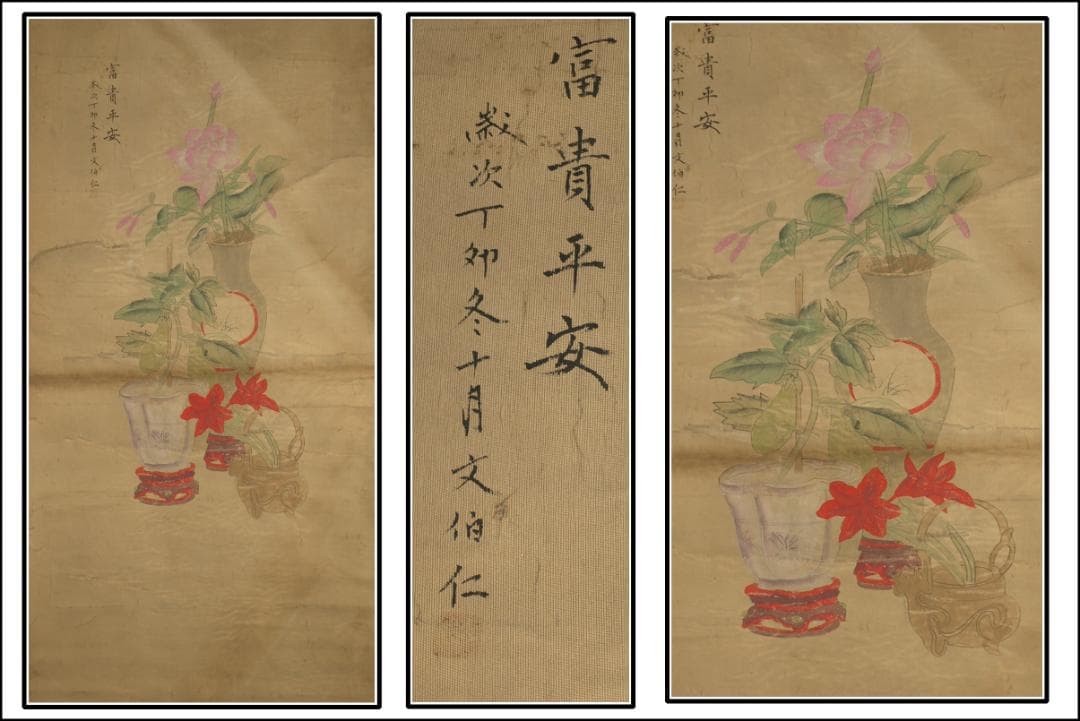 富貴平安
歲次丁卯冬十月文伯仁
富貴平安
歲次丁卯冬十月文伯仁
富貴平安
歲次丁卯冬十月文伯仁